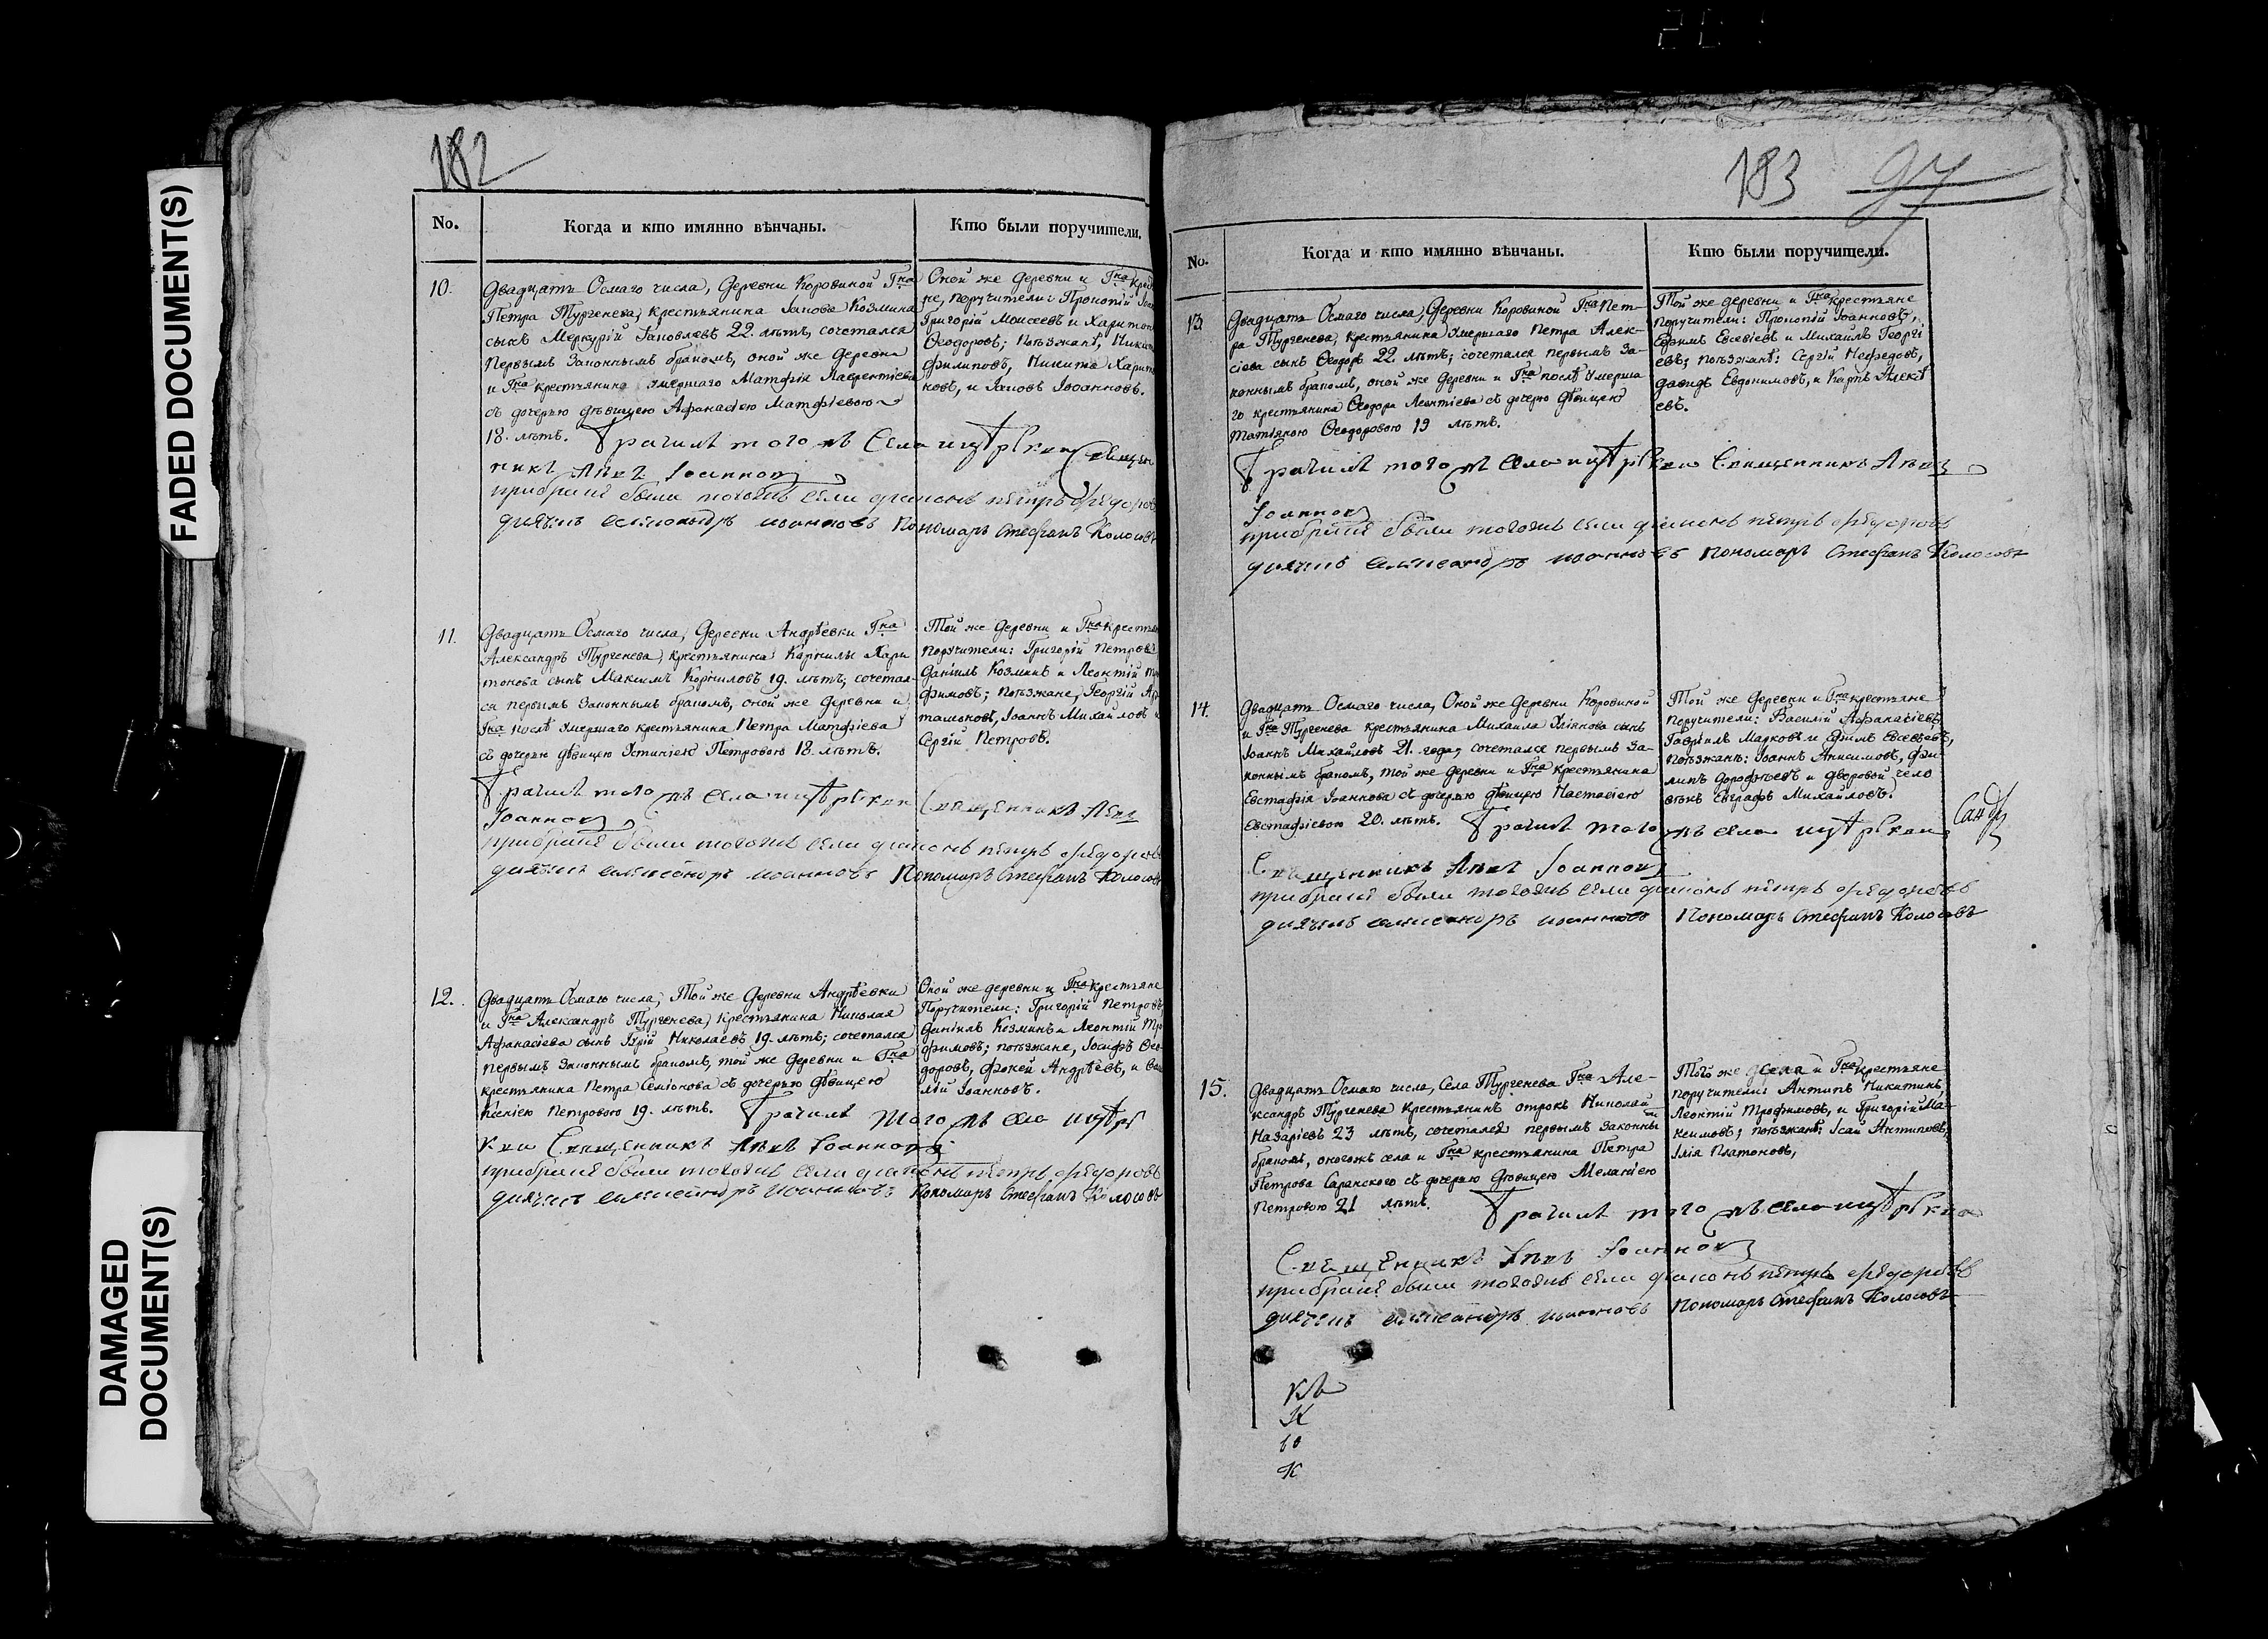 FADED DOCUMENT(S)
DAMAGED
DOCUMENT(S)
182
No.
Когда и кто имянно вѣнчаны.
Кто были поручители.
10.
Двадцать Осмаго числа, Деревни Коровиной Гна
Петра Тургенева, крестьянина Iакова Козмина
сынъ Меркурій Iаковлевъ 22. лѣтъ, сочетался
первымъ Законнымъ бракомъ, оной же Деревни
и Гна крестьянина умершаго Матфія Лаврентіева
съ дочерью дѣвицею Афанасіею Матфіевою
18. лѣтъ. Брачилъ того жъ села
Iоаннов
при браке были того жъ села диаконъ петръ федоровъ
дячикъ александръ иоанновъ Пономарь Стефанъ Колосовъ
Оной же деревни и Гна
поручители: Прокопій
Григорій Моисеевъ и Харитон
Ѳеодоровъ; поѣзжанѣ,
Филиповъ, Никита
ковъ, и Iаковъ Iоанновъ.
11.
Двадцать Осмаго числа, Деревни Андрѣевки Гна
Александръ Тургенева, крестьянина Карнилы Хари
тонова сынъ Максимъ Корниловъ 19. лѣтъ, сочетал-
ся первымъ Законнымъ бракомъ, оной же Деревни и
Гна послѣ умершаго крестьянина Петра Матфіева
съ дочерью дѣвицею Устиніею Петровою 18. лѣтъ.
Брачилъ того жъ села Священникъ
Iоаннов
при браке были того жъ села диаконъ петръ федоровъ
дячикъ александръ иоанновъ Пономарь Стефанъ Колосовъ
Той же деревни и Гна
поручители: Григорій Петровъ
Даніилъ Козминъ и Леонтій
фимовъ; поѣзжане, Георгій
тамоновъ, Iоаннъ Михайловъ
Сергій Петровъ.
12.
Двадцать Осмаго числа, Той же Деревни Андрѣевки
и Гна Александръ Тургенева, крестьянина Николая
Афанасіева сынъ Николаевъ 19. лѣтъ; сочетался
первымъ Законнымъ бракомъ, той же Деревни и Гна
крестьянина Петра Семіонова съ дочерью дѣвицею
Ксеніею Петровою 19. лѣтъ. Брачилъ того жъ села
Священникъ Iоаннов
при браке были того жъ села диаконъ петръ федоровъ
дячикъ александръ иоанновъ Пономарь Стефанъ Колосовъ
Оной же деревни и Гна крестьяне
Поручители: Григорій Петровъ,
Даніилъ Козминъ и Леонтій Тро
фимовъ; поѣзжане, Iосифъ Ѳео-
доровъ, Фокей Андрѣевъ, и
лій Iоанновъ.
183 97
No.
Когда и кто имянно вѣнчаны.
Кто были поручители.
13.
Двадцать Осмаго числа, Деревни Коровиной Гна Пет-
ра Тургенева, крестьянина умершаго Петра Алек-
сіева сынъ Ѳеодоръ 22. лѣтъ; сочетался первымъ За-
коннымъ бракомъ, оной же деревни и Гна послѣ умерша
го крестьянина Ѳеодора Леонтіева съ дочерью дѣвицею
Татіяною Ѳеодоровою 19 лѣтъ.
Брачилъ того жъ села Священникъ
Iоаннов
при браке были того жъ села диаконъ петръ федоровъ
дячикъ александръ иоанновъ Пономарь Стефанъ Колосовъ
Той же деревни и Гна крестьяне
поручители: Прокопій Iоанновъ,
Ефимъ Евсевіевъ и Михаилъ Георгі
евъ; поѣзжанѣ: Сергій Нефедовъ,
Давидъ Евдокимовъ, и Карпъ Алексѣ
евъ.
14.
Двадцать Осмаго числа, Оной же Деревни Коровиной
и Гна Тургенева крестьянина Михаила Улянова сынъ
Iоаннъ Михайловъ 21. года, сочетался первымъ За-
коннымъ бракомъ, той же деревни и Гна крестьянина
Евстафія Iоаннова съ дочерью дѣвицею Настасіею
Евстафіевою 20. лѣтъ. Брачилъ того жъ села
Священникъ Iоаннов
при браке были того жъ села диаконъ петръ федоровъ
дячикъ александръ иоанновъ Пономарь Стефанъ Колосовъ
Той же Деревни и Гна крестьяне
поручители: Василій Афанасіевъ,
Гавріилъ Марковъ и Ефимъ Евсевіевъ,
поѣзжанѣ: Iоаннъ Анисимовъ, Фи-
липъ Дорофѣевъ и дворовой чело
вѣкъ Евграфъ Михайловъ.
15.
Двадцать Осмаго числа, Села Тургенева Гна Але-
ксандръ Тургенева крестьянинъ отрокъ Николай
Назаріевъ 23 лѣтъ, сочетался первымъ Законны
бракомъ, оногожъ села и Гна крестьянина Петра
Петрова Саранского съ дочерью дѣвицею Меланіею
Петровою 21 лѣтъ. Брачилъ того жъ села
Священникъ Iоаннов
при браке были того жъ села диаконъ петръ федоровъ
дячикъ александръ иоанновъ Пономарь Стефанъ Колосовъ
Того же села и Гна крестьяне
поручители: Антипъ Никитинъ,
Леонтій Трофимовъ, и Григорій Ма-
ксимовъ; поѣзжанѣ: Iсай Антиповъ,
Iлія Платоновъ,